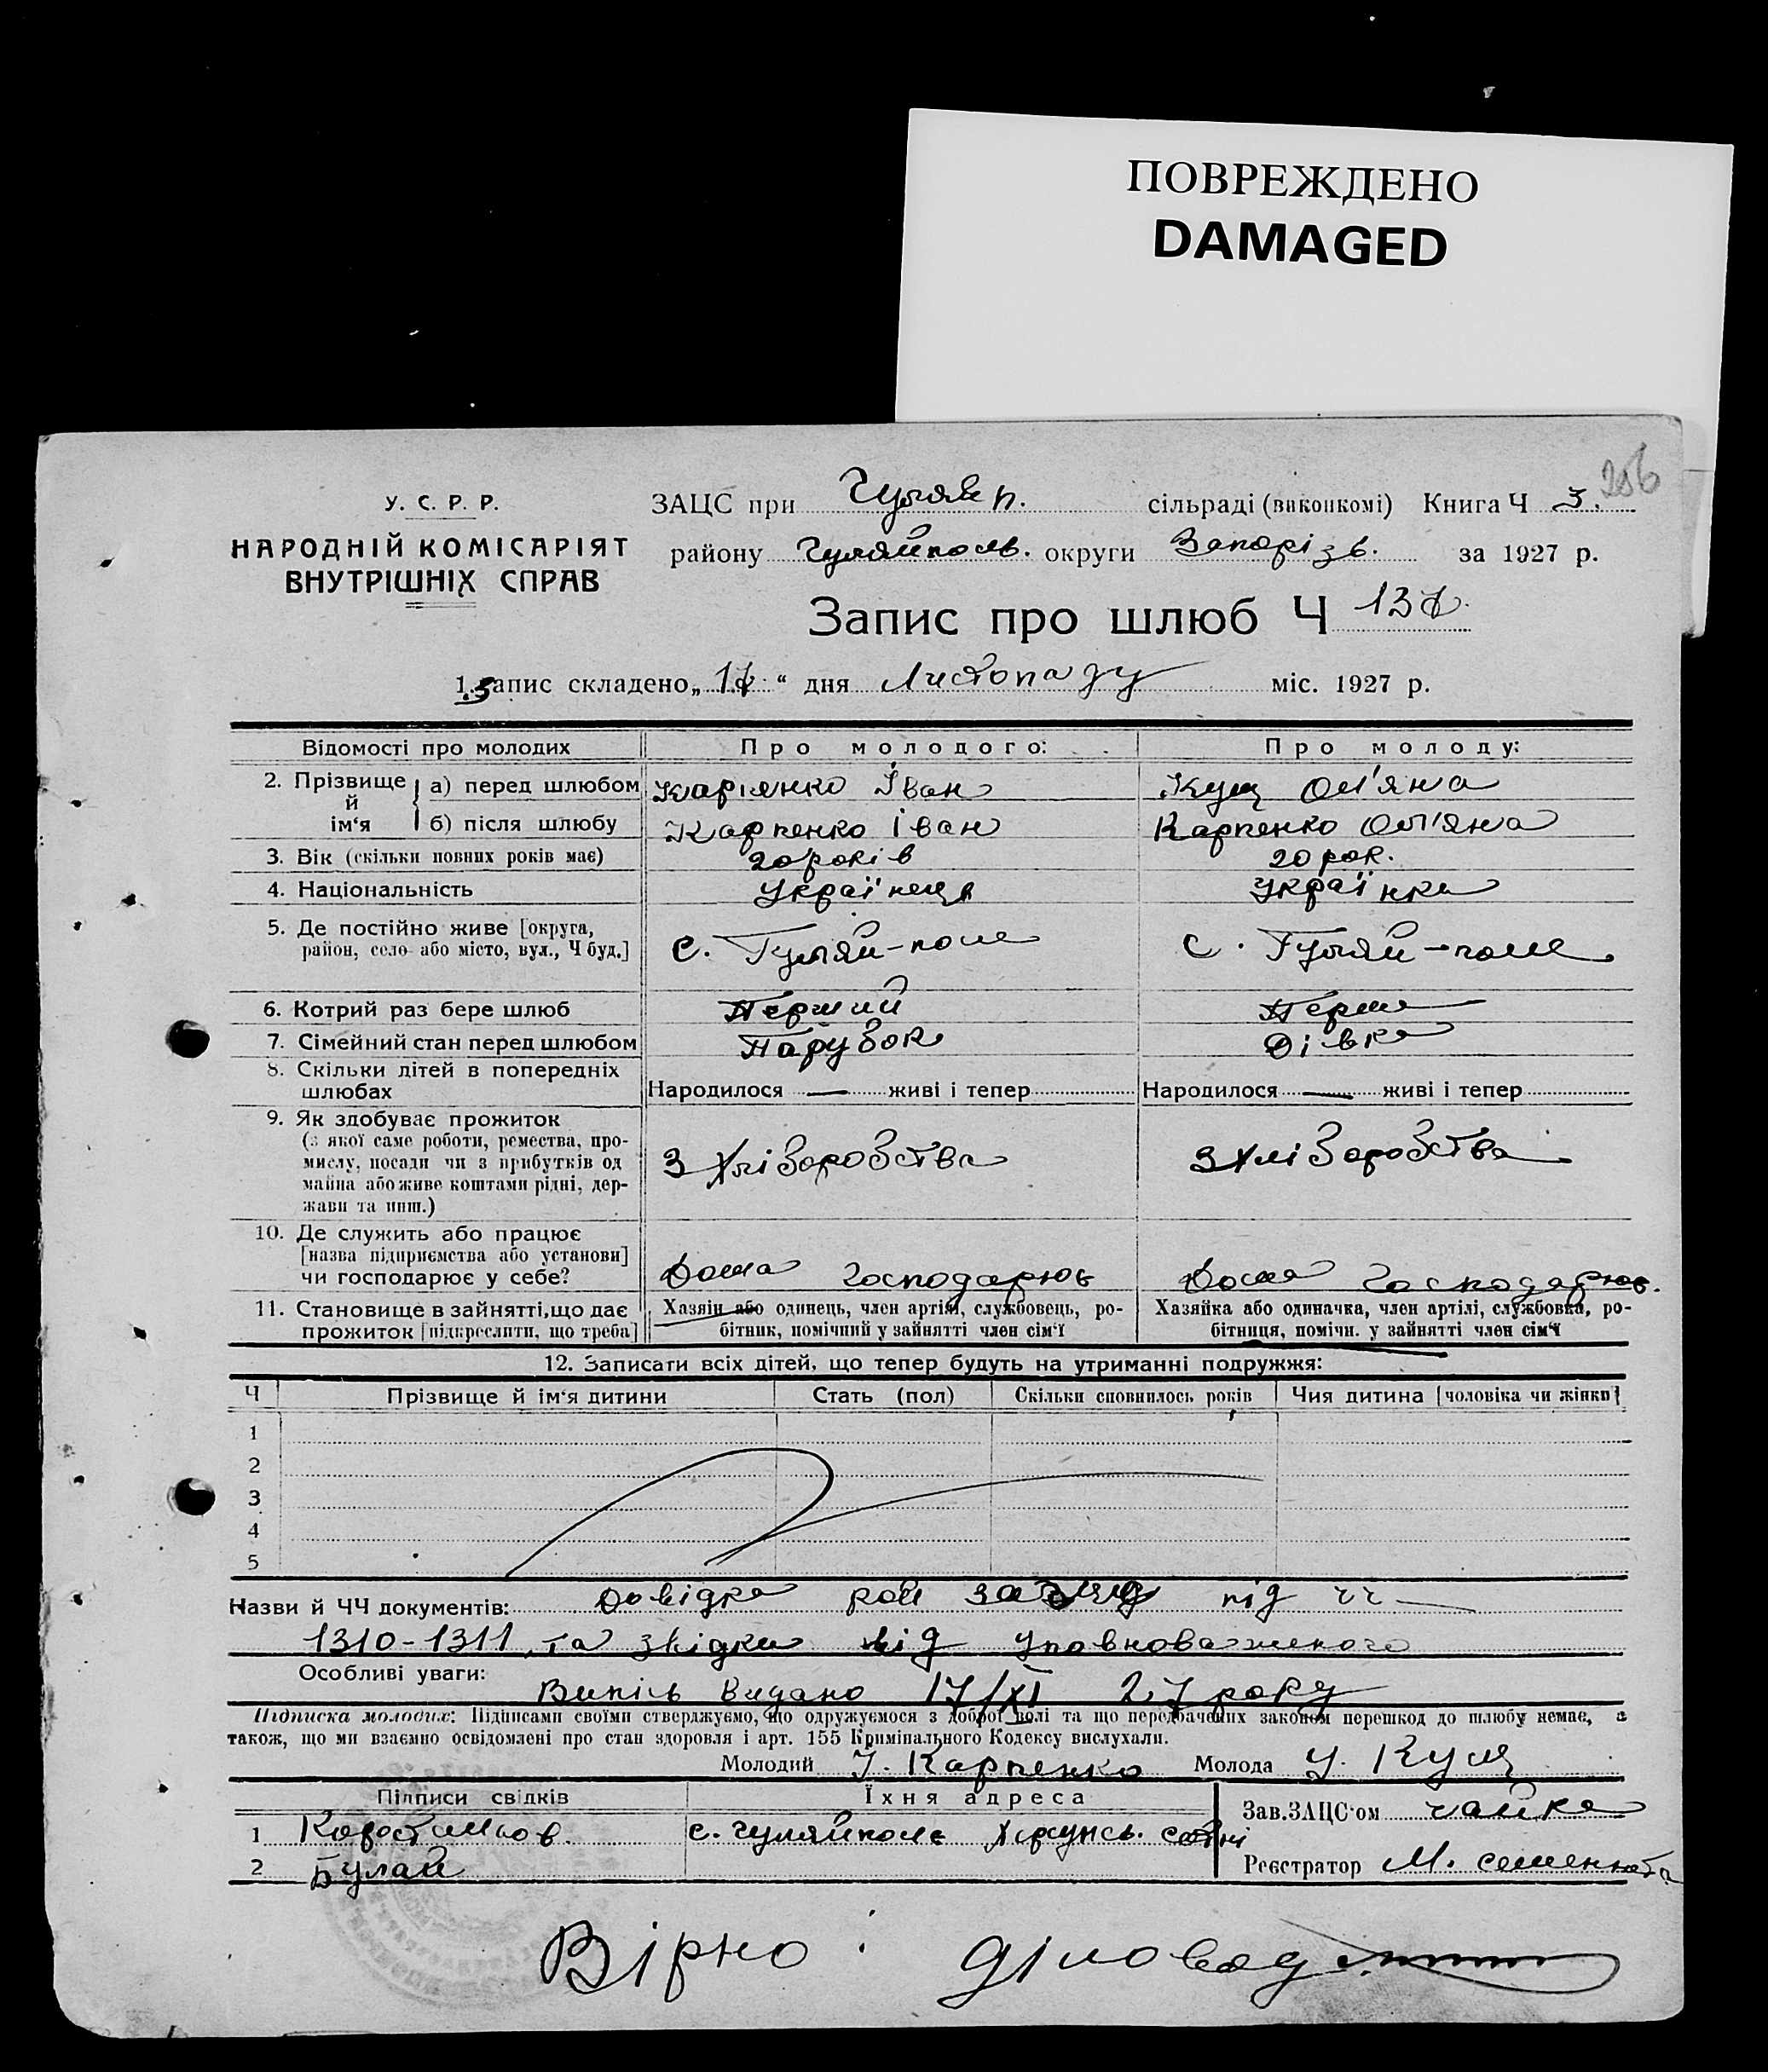 ПОВРЕЖДЕНО
DAMAGED
256
У. С. Р. Р.
НАРОДНІЙ КОМІСАРІЯТ
ВНУТРІШНІХ СПРАВ
ЗАЦС при Гуляйп. сільраді (виконкомі) Книга Ч 3.
району Гуляйполь. округи Запорізь. за 1927 р.
Запис про шлюб Ч
1. Запис складено „ “ дня Листопаду міс. 1927 р.
Відомості про молодих Про молодого: Про молоду:
2. Прізвище й ім‘я
а) перед шлюбом Карпенко Іван Кущ Ом'яна
б) після шлюбу Карпенко Іван Карпенко Ом'яна
3. Вік (скільки повних років має) 20 років 20 рок.
4. Національність Українець Українка
5. Де постійно живе [округа, район, село або місто, вул., Ч буд.] с. Гуляй-поле с. Гуляй-поле
6. Котрий раз бере шлюб Перший Перше
7. Сімейний стан перед шлюбом Парубок Дівка
8. Скільки дітей в попередніх шлюбах Народилося — живі і тепер Народилося — живі і тепер
9. Як здобуває прожиток
(з якої саме роботи, ремества, про-
мислу, посади чи з прибутків од
майна або живе коштами рідні, дер-
жави та инш.) З Хліборобства З Хліборобства
10. Де служить або працює
[назва підприємства або установи]
чи господарює у себе? Дома господарює Дома господарює.
11. Становище в зайнятті, що дає
прожиток [підкреслити, що треба]
Хазяін або одинець, член артілі, службовець, ро-
бітник, помічний у зайнятті член сім‘ї
Хазяйка або одиначка, член артілі, службовка, ро-
бітниця, помічн. у зайнятті член сім‘ї
12. Записати всіх дітей, що тепер будуть на утриманні подружжя:
Ч Прізвище й ім‘я дитини Стать (пол) Скільки сповнилось років Чия дитина [чоловіка чи жінки]
1
2
3
4
5
Назви й ЧЧ документів: Довідка під чч —
1310-1311 та звідка від уповноваженого
Особливі уваги: Випісь видано 17/XI 27 року
Підписка молодих: Підписами своїми стверджуємо, що одружуємося з доброї волі та що передбачених законом перешкод до шлюбу немає, а
також, що ми взаємно освідомлені про стан здоровля і арт. 155 Кримінального Кодексу вислухали.
Молодий І. Карпенко Молода У. Кущ
Підписи свідків Їхня адреса Зав.ЗАЦС‘ом Чайка
1 с. Гуляйполе
2 Булай Реєстратор М. Семенюта
Вірно: діловод